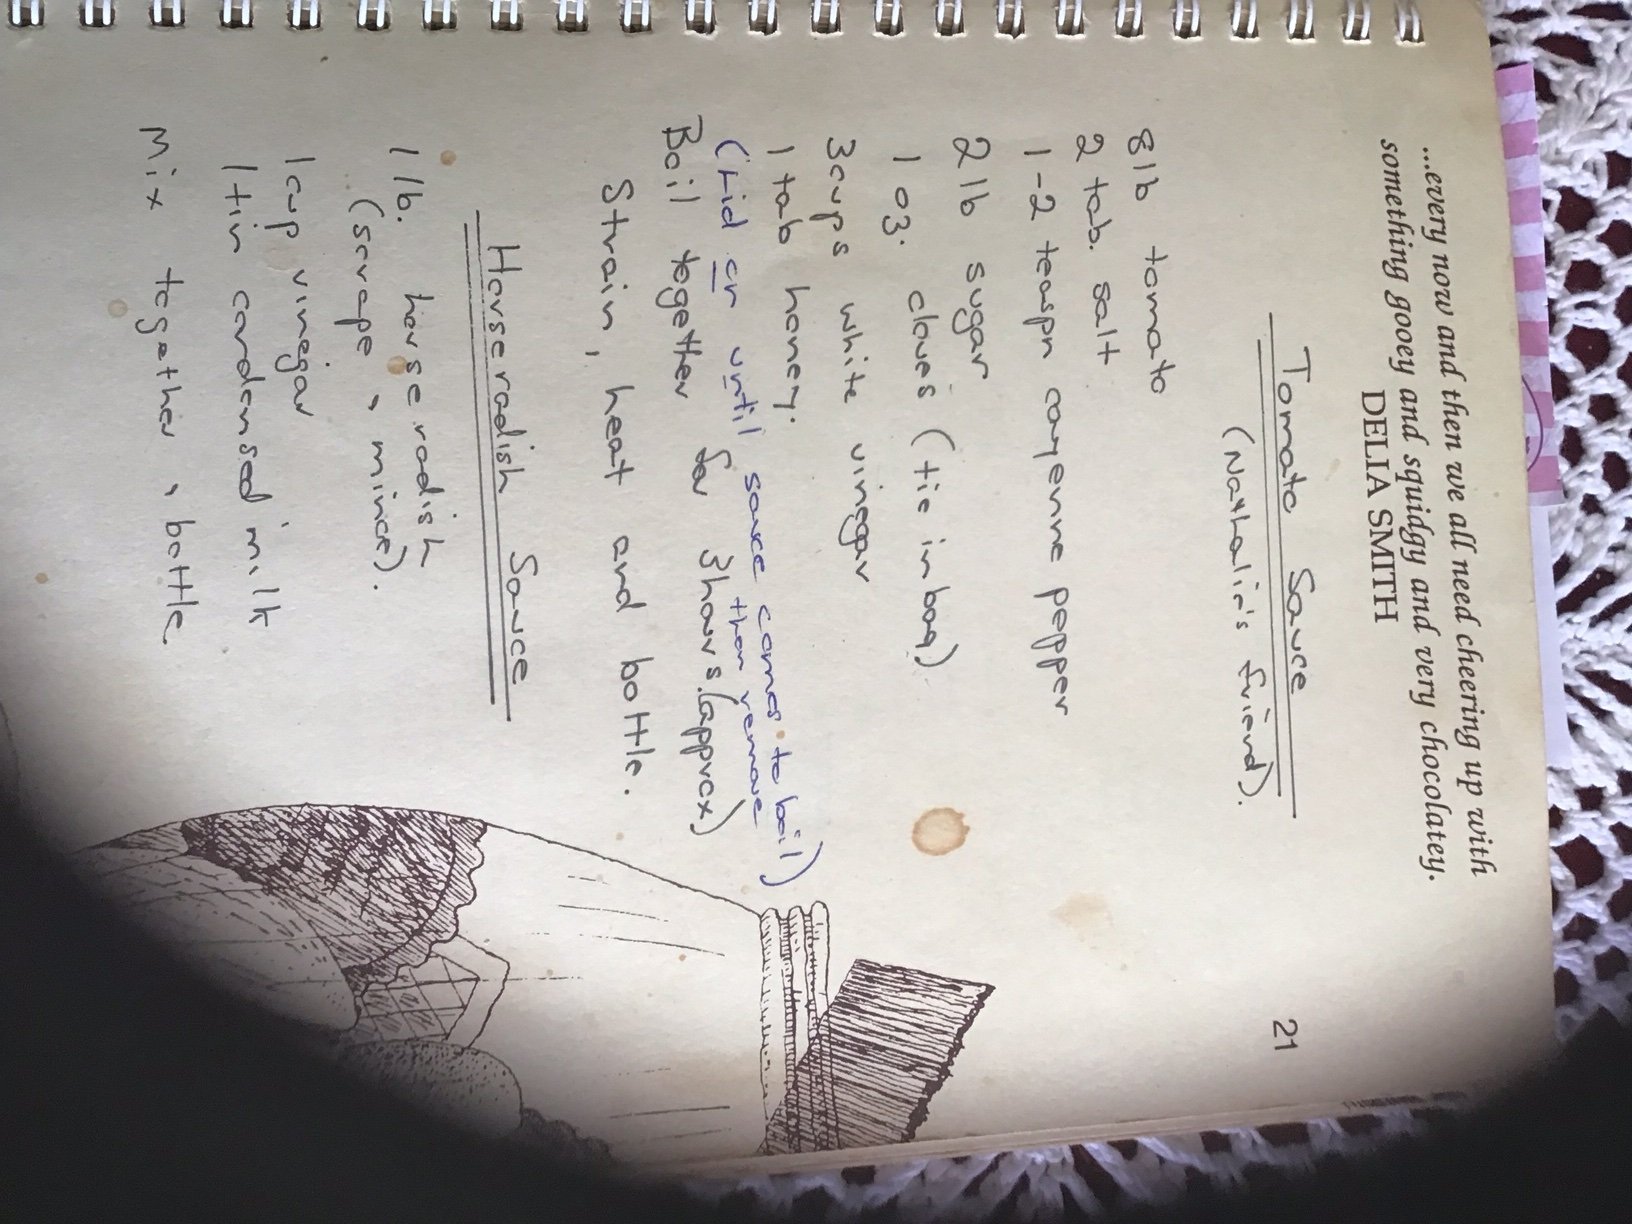 ...every now and then we all need cheering up with
something gooey and squidgy and very chocolatey.
DELIA SMITH
21
Tomato Sauce
(Nathalie's friend).
8 lb tomato
2 tab. salt
1-2 teaspn cayenne pepper
2 lb sugar
1 oz. cloves (tie in bag)
3 cups white vinegar
1 tab honey.
(Lid on until sauce comes to boil)
then remove
Boil together for 3 hours (approx)
Strain, heat and bottle.
Horseradish Sauce
1 lb. horseradish
(scrape, mince).
1 cup vinegar
1 tin condensed milk
Mix together, bottle.